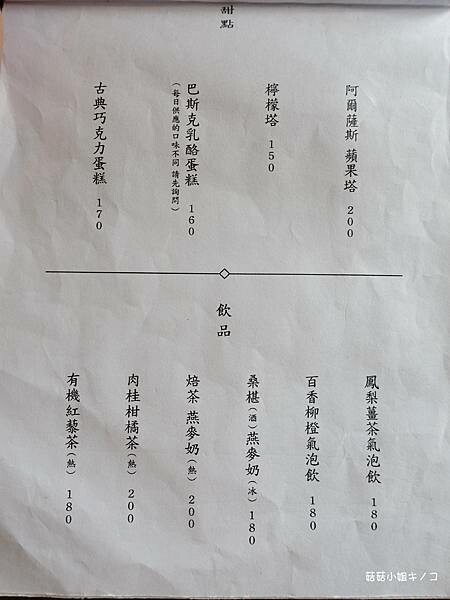 甜點
阿爾薩斯 蘋果塔 200
檸檬塔 150
巴斯克乳酪蛋糕 160
(每日供應的口味不同 請先詢問)
古典巧克力蛋糕 170
飲品
鳳梨薑茶氣泡飲 180
百香柳橙氣泡飲 180
桑椹(酒)燕麥奶(冰) 180
焙茶 燕麥奶(熱) 200
肉桂柑橘茶(熱) 200
有機紅藜茶(熱) 180
菇菇小姐キノコ